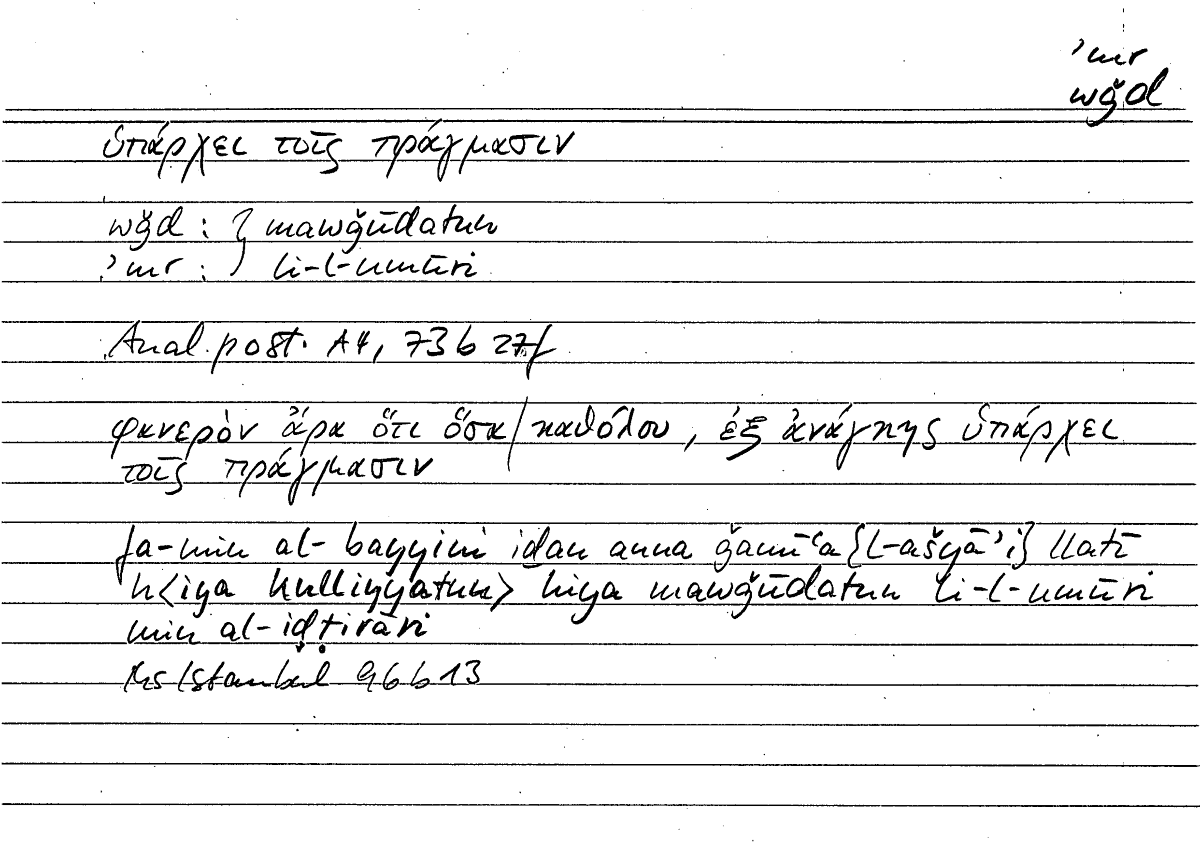 ʾmr
wǧd
ὑπάρχει τοῖς πράγμασιν
wǧd : } mawǧūdatun
ʾmr : } li-l-umūri
Anal. post. A4, 73 b 27f
φανερὸν ἄρα ὅτι ὅσα / καθόλου, ἐξ ἀνάγκης ὑπάρχει
τοῖς πράγμασιν
fa-min al-bayyini iḏan anna ǧamīʿa {l-ašyāʾi} llatī
h<iya kulliyyatun> hiya mawǧūdatun li-l-umūri
min al-iḍṭirāri
Ms Istanbul 96 b 13